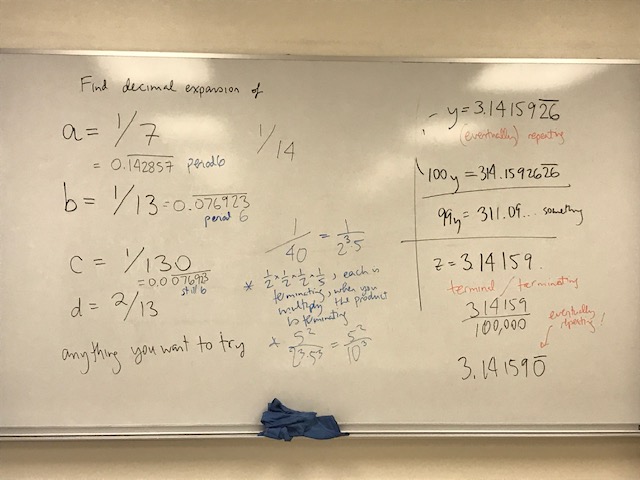 Find decimal expansion of
a = 1/7
= 0.1̅4̅2̅8̅5̅7̅ period 6
1/14
b = 1/13 = 0.0̅7̅6̅9̅2̅3̅
period 6
c = 1/130
= 0.0 0̅7̅6̅9̅2̅3̅
still 6
d = 2/13
anything you want to try
1/40 = 1/2³·5
* 1/2 × 1/2 × 1/2 × 1/5, each is
terminating, when you
multiply the product
is terminating
* 5²/2³·5³ = 5²/10³
y = 3.141592̅6̅
(eventually) repeating
100y = 314.159262̅6̅
99y = 311.09... something
z = 3.14159.
terminal / terminating
314159/100,000
eventually
repeating!
3.141590̅